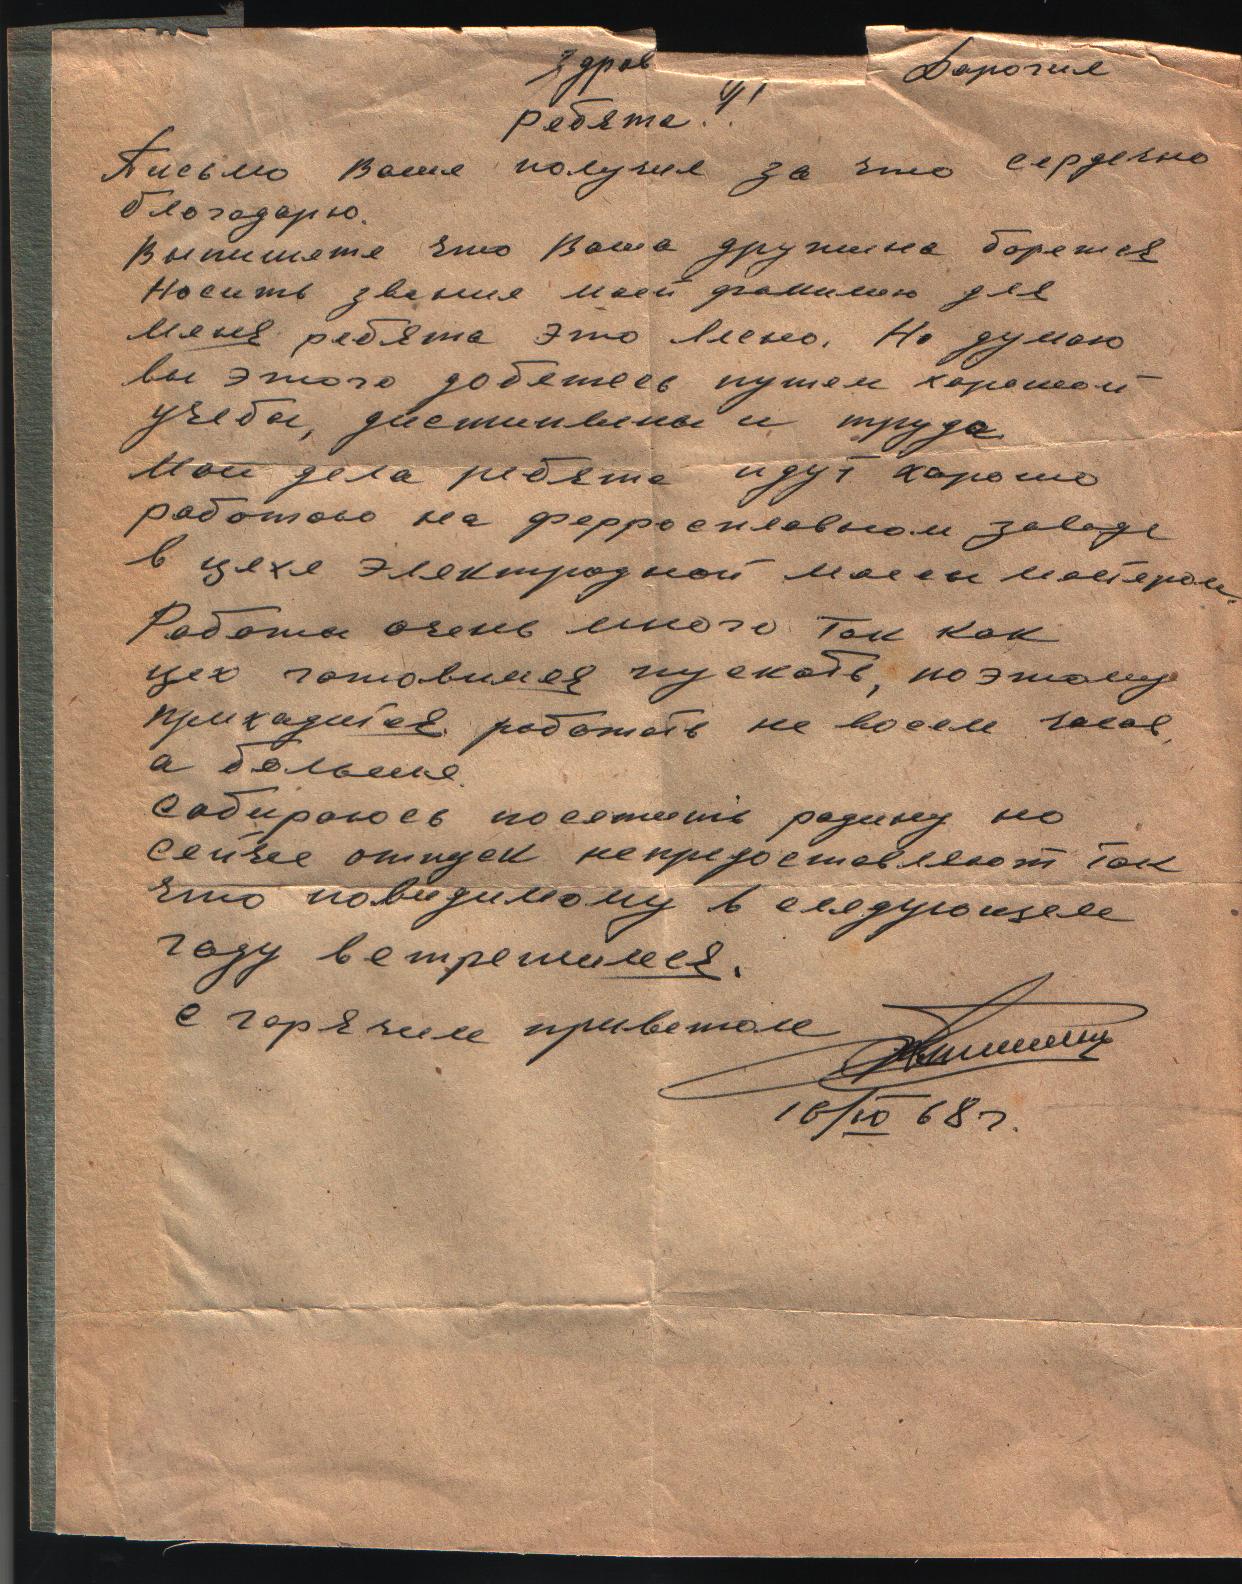 Здрав Дорогие
Ребята!!!
Письмо Ваше получил за что сердечно
благодарю.
Выпишете что Ваша дружина борется
Носить звание моей фамилию для
меня ребята это лесно. Но думаю
вы этого добетесь путем хорошой
учебы, дистиплины и труда
Мои дела ребята идут хорошо
работаю на ферросплавном заводе
в цехе электродной массы мастером.
Работы очень много так как
цех готовимся пускать, поэтому
приходится работать не восем часов,
а больше.
Собираюсь посетить родину но
сейчас отпуск непредоставляют так
что повидимому в следующем
году встретимся.
С горячим приветом
68 г.